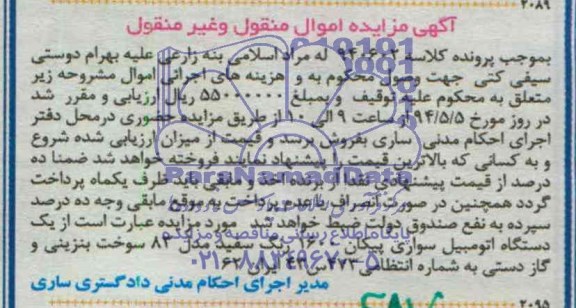 ۲۰۸۹
آگهی مزایده اموال منقول وغیر منقول
بموجب پرونده کلاسه له مراد اسلامی بنه زارعی علیه بهرام دوستی
سیفی کتی جهت وصول محکوم به و هزینه های اجرائی اموال مشروحه زیر
متعلق به محکوم علیه توقیف و بمبلغ ۵۵۰۰۰۰۰۰ ریال ارزیابی و مقرر شد
در روز مورخ ۹۴/۵/۵ از ساعت ۹ الی ۱۰ از طریق مزایده حضوری درمحل دفتر
اجرای احکام مدنی ساری بفروش برسد و قیمت از میزان ارزیابی شده شروع
و به کسانی که بالاترین قیمت را پیشنهاد نمایند فروخته خواهد شد ضمنا ده
درصد از قیمت پیشنهادی نقدا از برنده اخذ و مابقی باید ظرف یکماه پرداخت
گردد همچنین در صورت انصراف یا عدم پرداخت به موقع مابقی وجه ده درصد
سپرده به نفع صندوق دولت ضبط خواهد شد مورد مزایده عبارت است از یک
دستگاه اتومبیل سواری پیکان ۱۶۰۰ رنگ سفید مدل ۸۳ سوخت بنزینی و
گاز دستی به شماره انتظامی ایران ۶۲
مدیر اجرای احکام مدنی دادگستری ساری
۲۰۹۵
ParsNamadData
پایگاه اطلاع رسانی مناقصه و مزایده
۰۲۱-۸۸۳۴۹۶۷۰-۵